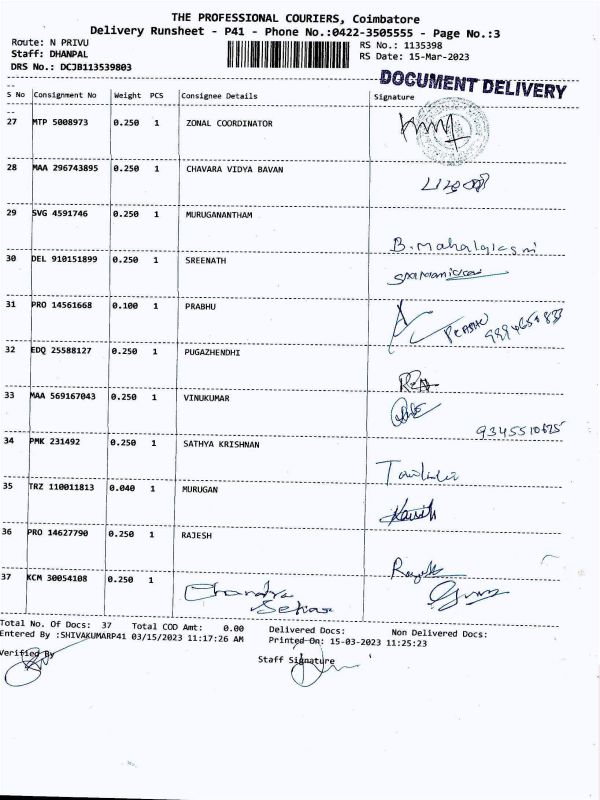 THE PROFESSIONAL COURIERS, Coimbatore
Delivery Runsheet - P41 - Phone No.:0422-3505555 - Page No.:3
Route: N PRIVU
Staff: DHANPAL
DRS No.: DCJB113539803
RS No.: 1135398
RS Date: 15-Mar-2023
DOCUMENT DELIVERY
S No Consignment No Weight PCS Consignee Details Signature
27 MTP 5008973 0.250 1 ZONAL COORDINATOR
28 MAA 296743895 0.250 1 CHAVARA VIDYA BAVAN
29 SVG 4591746 0.250 1 MURUGANANTHAM
B. Mahalakshmi
30 DEL 910151899 0.250 1 SREENATH
31 PRO 14561668 0.100 1 PRABHU
32 EDQ 25588127 0.250 1 PUGAZHENDHI
33 MAA 569167043 0.250 1 VINUKUMAR
9345510625
34 PMK 231492 0.250 1 SATHYA KRISHNAN
35 TRZ 110011813 0.040 1 MURUGAN
36 PRO 14627790 0.250 1 RAJESH
37 KCM 30054108 0.250 1 Chandra
Sekar
Total No. Of Docs: 37 Total COD Amt: 0.00 Delivered Docs: Non Delivered Docs:
Entered By :SHIVAKUMARP41 03/15/2023 11:17:26 AM Printed On: 15-03-2023 11:25:23
Verified By Staff Signature